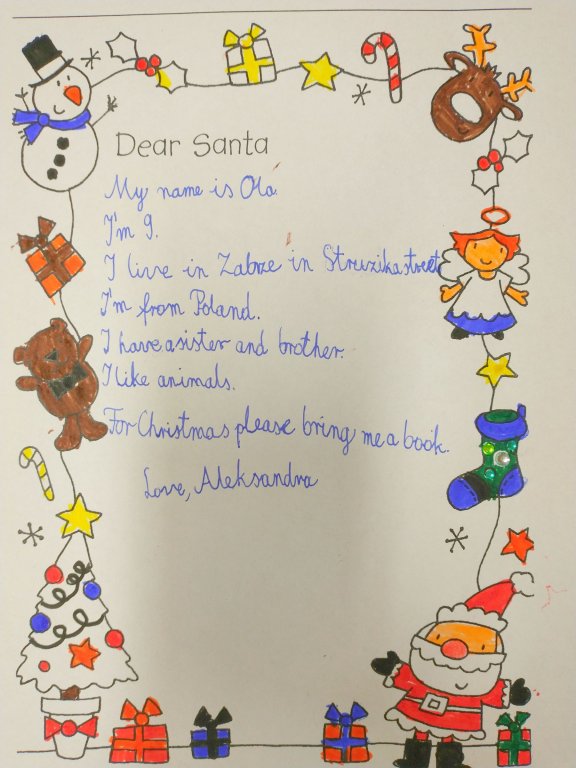 Dear Santa
My name is Ola.
I'm 9.
I live in Zabrze in Struzika street
I'm from Poland.
I have a sister and brother.
I like animals.
For Christmas please bring me a book.
Love, Aleksandra